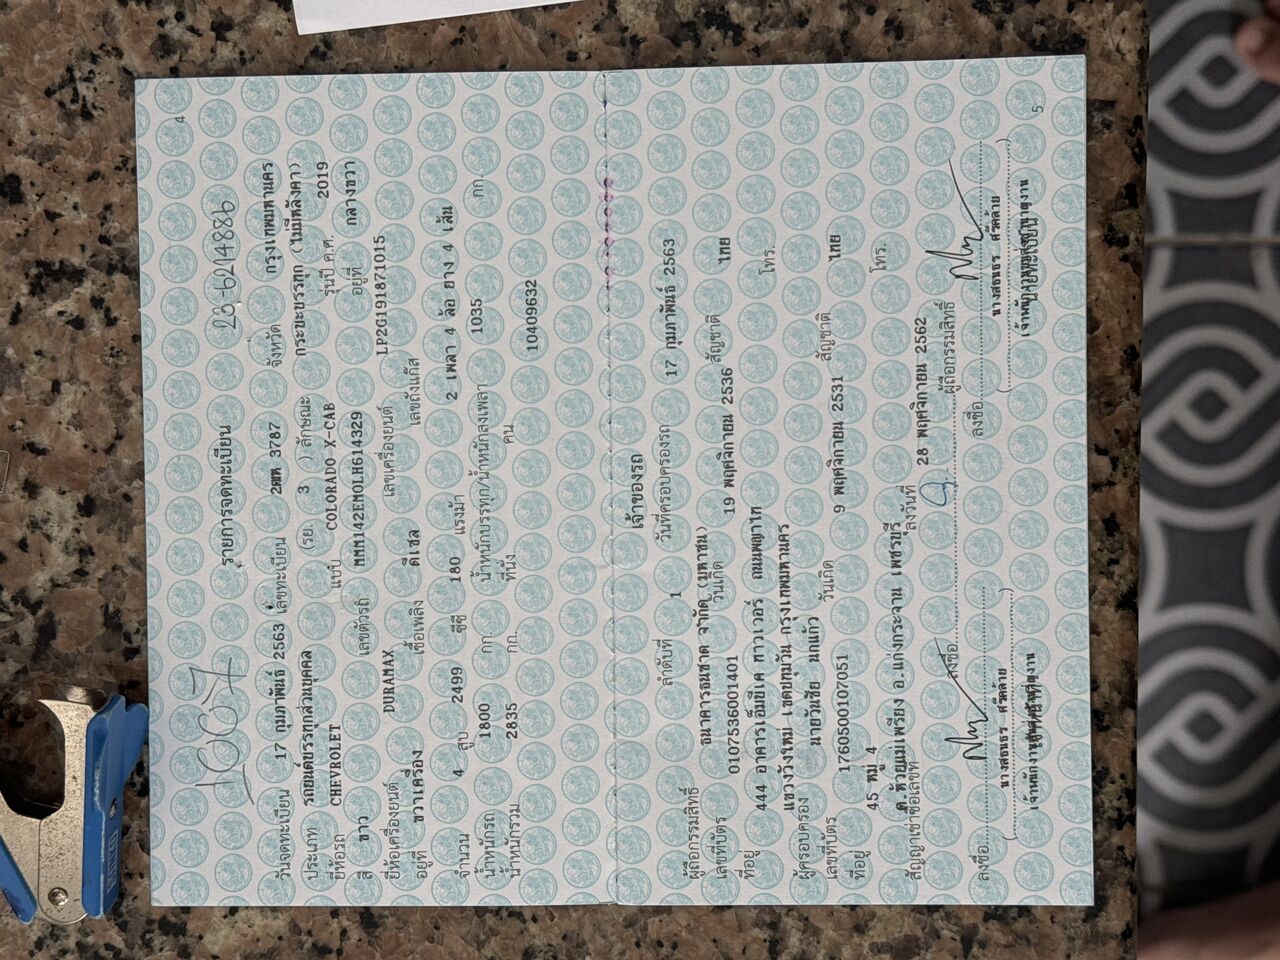 4
1007
23-6214886
รายการจดทะเบียน
วันจดทะเบียน 17 กุมภาพันธ์ 2563 เลขทะเบียน 2ฒฒ 3787 จังหวัด กรุงเทพมหานคร
ประเภท รถยนต์บรรทุกส่วนบุคคล (รย. 3 ) ลักษณะ กระบะบรรทุก (ไม่มีหลังคา)
ยี่ห้อรถ CHEVROLET แบบ COLORADO X-CAB รุ่นปี ค.ศ. 2019
สี ขาว เลขตัวรถ MMM142EM0LH614329 อยู่ที่ กลางขวา
ยี่ห้อเครื่องยนต์ DURAMAX เลขเครื่องยนต์ LP2G191871015
อยู่ที่ ขวาเครื่อง เชื้อเพลิง ดีเซล เลขถังแก๊ส
จำนวน 4 สูบ 2499 ซีซี 180 แรงม้า 2 เพลา 4 ล้อ ยาง 4 เส้น
น้ำหนักรถ 1800 กก. น้ำหนักบรรทุก/น้ำหนักลงเพลา 1035 กก.
น้ำหนักรวม 2835 กก. ที่นั่ง คน 10409632
เจ้าของรถ
ลำดับที่ 1 วันที่ครอบครองรถ 17 กุมภาพันธ์ 2563
ผู้ถือกรรมสิทธิ์ ธนาคารธนชาต จำกัด(มหาชน)
เลขที่บัตร 0107536001401 วันเกิด 19 พฤศจิกายน 2536 สัญชาติ ไทย
ที่อยู่ 444 อาคารเอ็มบีเค ทาวเวอร์ ถนนพญาไท โทร.
แขวงวังใหม่ เขตปทุมวัน กรุงเทพมหานคร
ผู้ครอบครอง นายวันชัย นกแก้ว
เลขที่บัตร 1760500107051 วันเกิด 9 พฤศจิกายน 2531 สัญชาติ ไทย
ที่อยู่ 45 หมู่ 4 โทร.
ต.ห้วยแม่เพรียง อ.แก่งกระจาน เพชรบุรี
สัญญาเช่าซื้อเลขที่ ลงวันที่ 28 พฤศจิกายน 2562 ผู้ถือกรรมสิทธิ์
ลงชื่อ ลงชื่อ ลงชื่อ
5